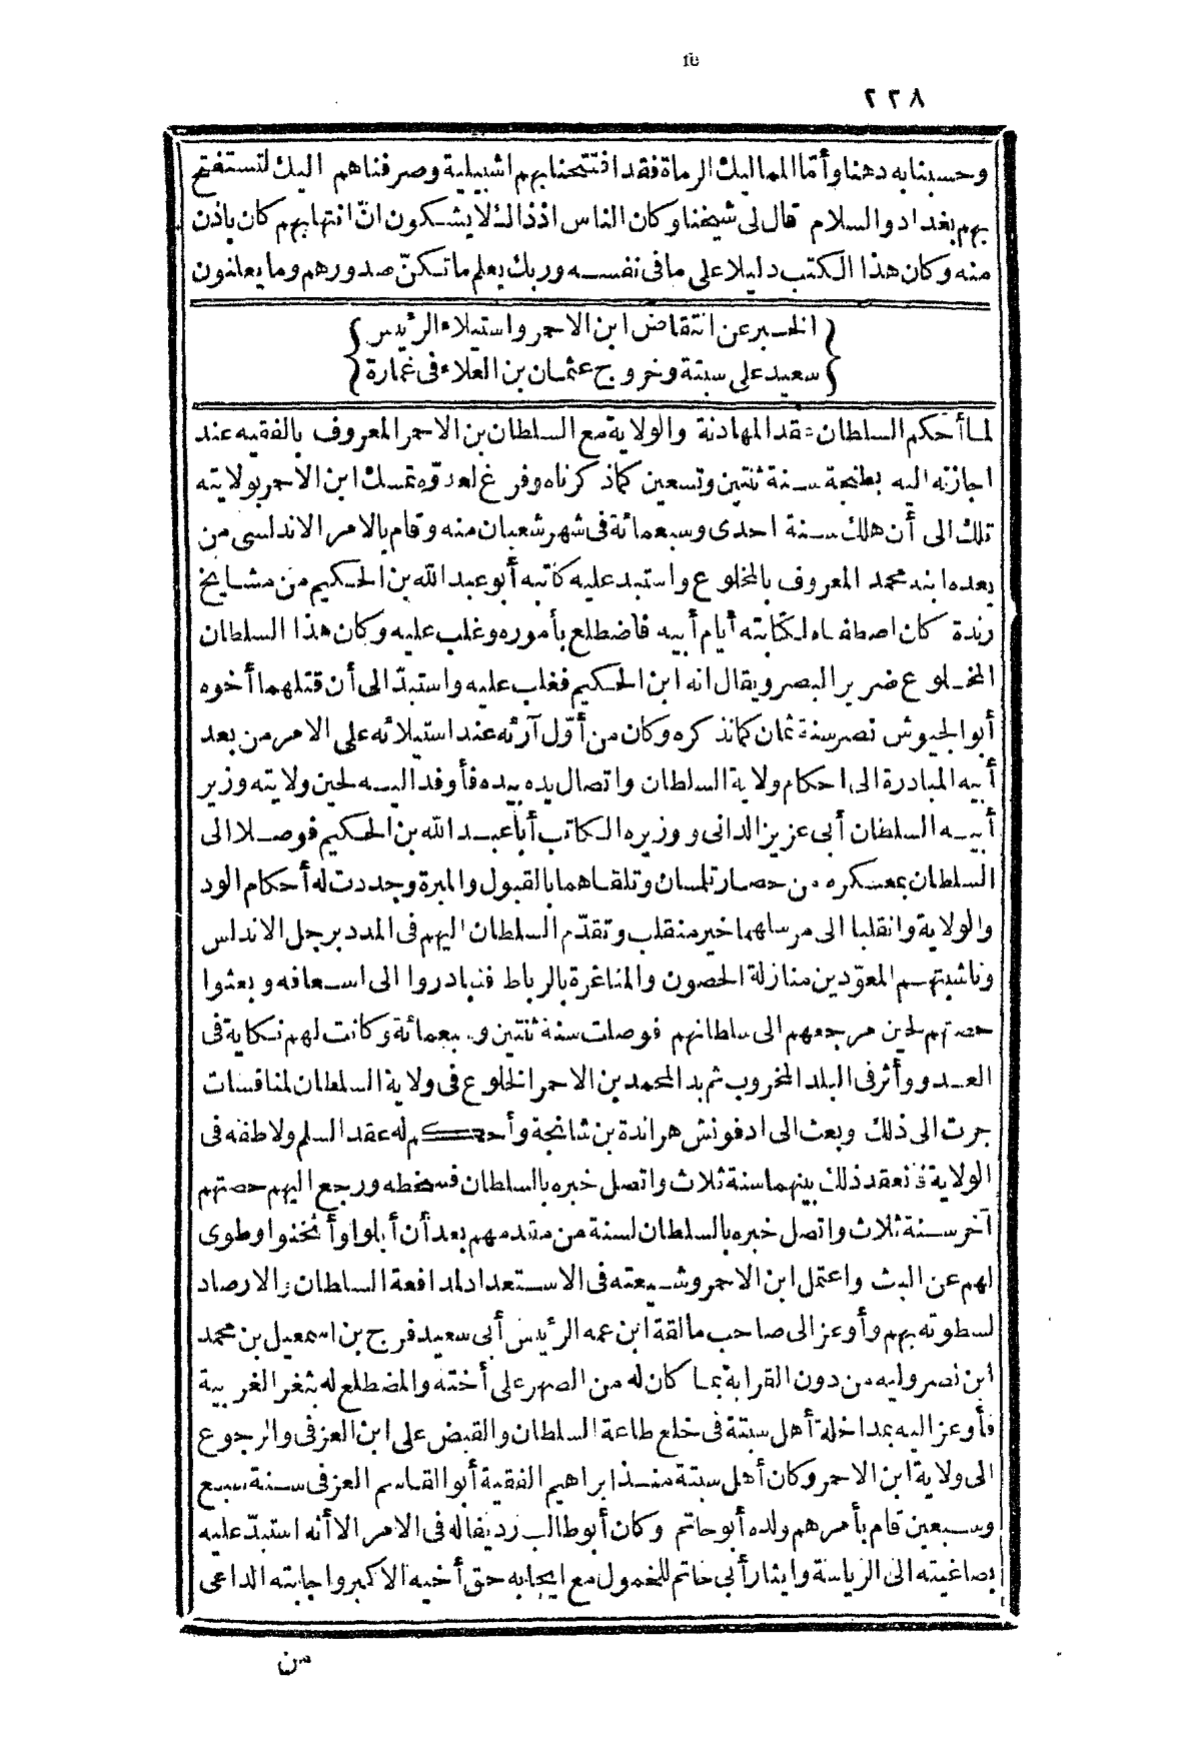 ٢٢٨
وحسبنا به دهنا وأمّا المماليك الرماة فقد افتتحنا بهم اشبيلية وصرفناهم اليك لتستفتح
بهم بغداد والسلام قال لى شيخنا وكان الناس اذ ذاك لا يشكون انّ انتهابهم كان باذن
منه وكان هذا الكتب دليلا على ما فى نفسه وربك يعلم ما تكنّ صدورهم وما يعلنون
{الخبر عن انتقاض ابن الاحمر واستيلاء الرئيس}
{سعيد على سبتة وخروج عثمان بن العلاء فى غمارة}
لما أحكم السلطان عقد المهادنة والولاية مع السلطان بن الاحمر المعروف بالفقيه عند
اجازته اليه بطنجة سنة ثنتين وتسعين كما ذكرناه وفرغ لعدوّه تمسك ابن الاحمر بولايته
تلك الى أن هلك سنة احدى وسبعمائة فى شهر شعبان منه وقام بالامر الاندلسى من
بعده ابنه محمد المعروف بالمخلوع واستبد عليه كاتبه أبو عبد الله بن الحكيم من مشايخ
رندة كان اصطفاه لكتابته أيام أبيه فاضطلع بأموره وغلب عليه وكان هذا السلطان
المخلوع ضرير البصر ويقال انه ابن الحكيم فغلب عليه واستبدّ الى أن قتلهما أخوه
أبو الجيوش نصر سنة ثمان كما نذكره وكان من أوّل آرئه عند استيلائه على الامر من بعد
أبيه المبادرة الى احكام ولاية السلطان واتصال يده بيده فأوفد اليه لحين ولايته وزير
أبيه السلطان أبى عزيز الدانى ووزيره الكاتب أبا عبد الله بن الحكيم فوصلا الى
السلطان بمعسكره من حصار تلمسان وتلقاهما بالقبول والمبرة وجددت له أحكام الود
والولاية وانقلبا الى مرسلهما خير منقلب وتقدّم السلطان اليهم فى المدد برجل الاندلس
وناشبتهم المعوّدين منازلة الحصون والمناغرة بالرباط فتبادروا الى اسعافه وبعثوا
حصتهم لحين مرجعهم الى سلطانهم فوصلت سنة ثنتين وسبعمائة وكانت لهم نكاية فى
العدو وأثر فى البلد المخروب ثم بد المحمد بن الاحمر المخلوع فى ولاية السلطان لمنافسات
جرت الى ذلك وبعث الى ادفونش هراندة بن شانجة وأحكم له عقد السلم ولاطفه فى
الولاية فانعقد ذلك بينهما سنة ثلاث واتصل خبره بالسلطان فسخطه ورجع اليهم حصتهم
آخر سنة ثلاث واتصل خبره بالسلطان لسنة من مقدمهم بعد أن أبلوا وأثخنوا وطوى
لهم عن البث واعتمل ابن الاحمر وشيعته فى الاستعداد لمدافعة السلطان والارصاد
لسطوته بهم وأوعز الى صاحب مالقة ابن عمه الرئيس أبى سعيد فرج بن اسمعيل بن محمد
ابن نصر وليه من دون القرابة بما كان له من الصهر على أخته والمضطلع له بثغر الغربية
فأوعز اليه بمداخلة أهل سبتة فى خلع طاعة السلطان والقبض على ابن العزفى والرجوع
الى ولاية ابن الاحمر وكان أهل سبتة منذ ابراهيم الفقيه أبو القاسم العزفى سنة سبع
وسبعين قام بأمرهم ولده أبو حاتم وكان أبو طالب رديفا له فى الامر الا أنه استبدّ عليه
بصاغيته الى الرياسة وايثار أبى حاتم للخمول مع ايجابه حق أخيه الاكبر واجابته الداعى
من